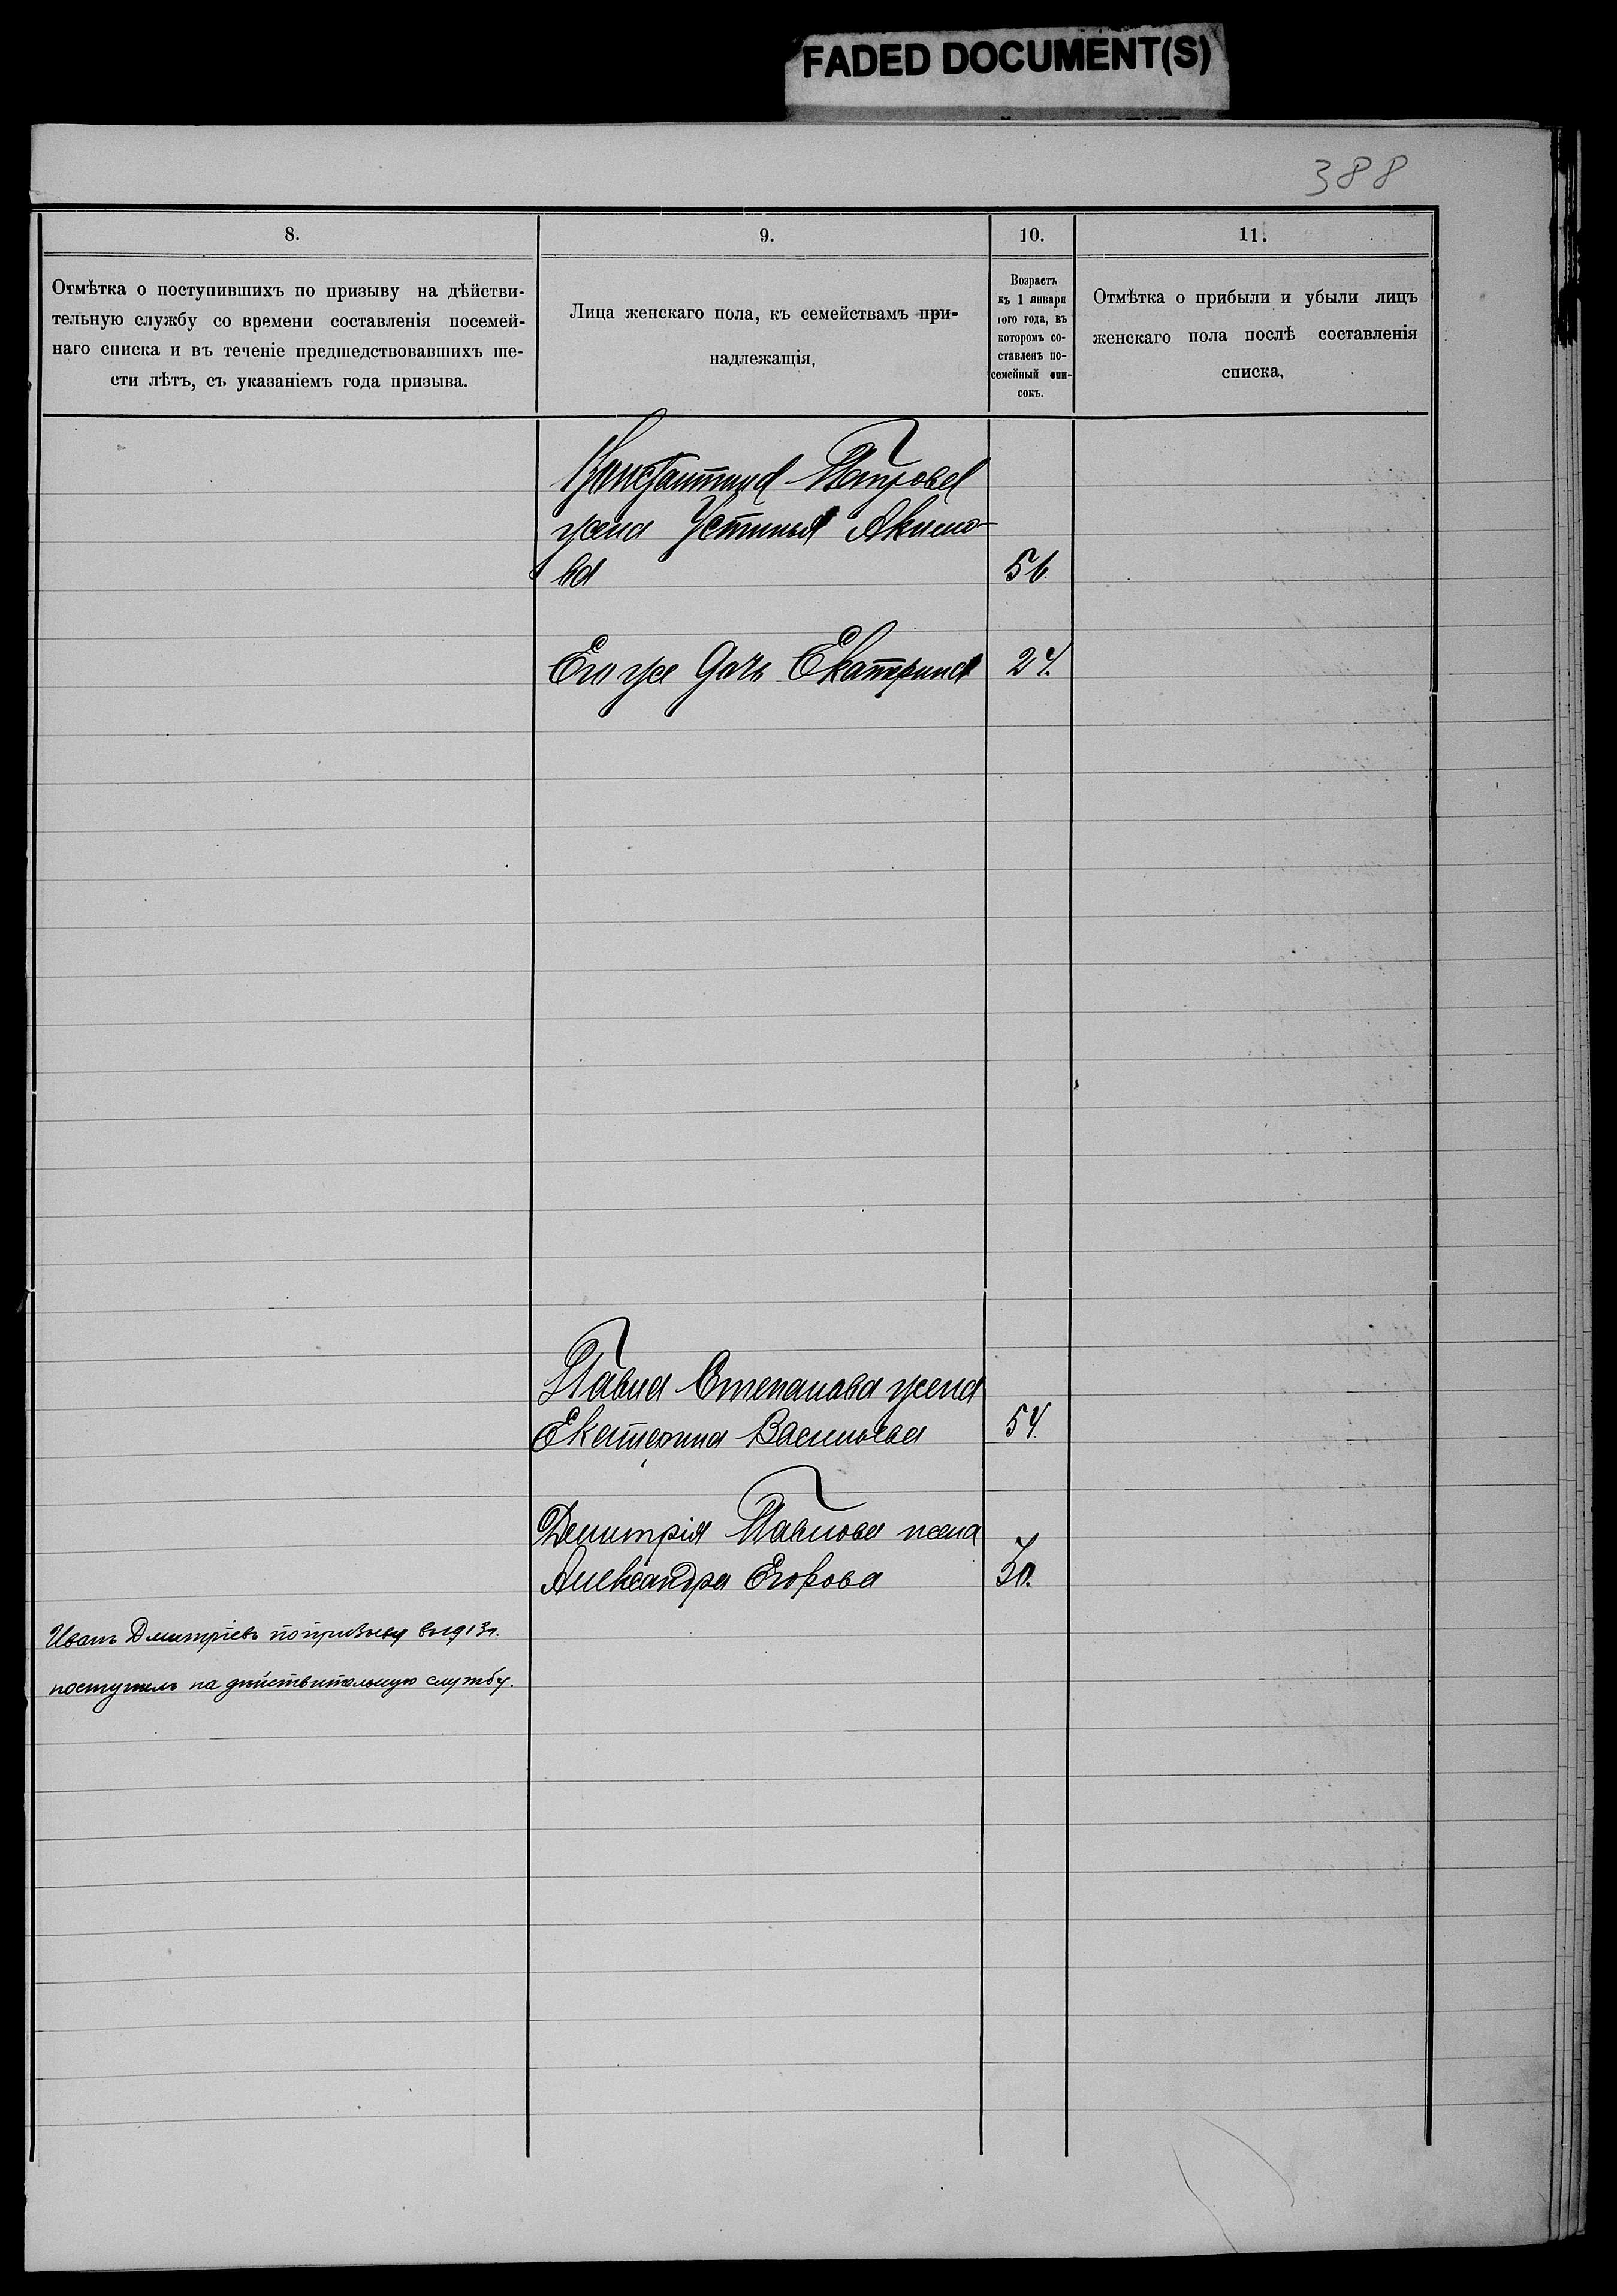 FADED DOCUMENT(S)
388
8.
9.
10.
11.
Отмѣтка о поступившихъ по призыву на дѣйстви-
тельную службу со времени составленія посемей-
наго списка и въ теченіе предшедствовавшихъ ше-
сти лѣтъ, съ указаніемъ года призыва.
Лица женскаго пола, къ семействамъ при-
надлежащія,
Возрастъ
къ 1 января
того года, въ
которомъ со-
ставленъ по-
семейный спи-
сокъ.
Отмѣтка о прибыли и убыли лицъ
женскаго пола послѣ составленія
списка,
Константина Петрова
жена Устинья Акимо-
ва 56.
Его же дочь Екатерина 24.
Павла Степанова жена
Екатерина Васильева 54.
Димитрія Павлова жена
Александра Егорова 30.
Иванъ Дмитріевъ по призыву въ 1913 г.
поступилъ на дѣйствительную службу.